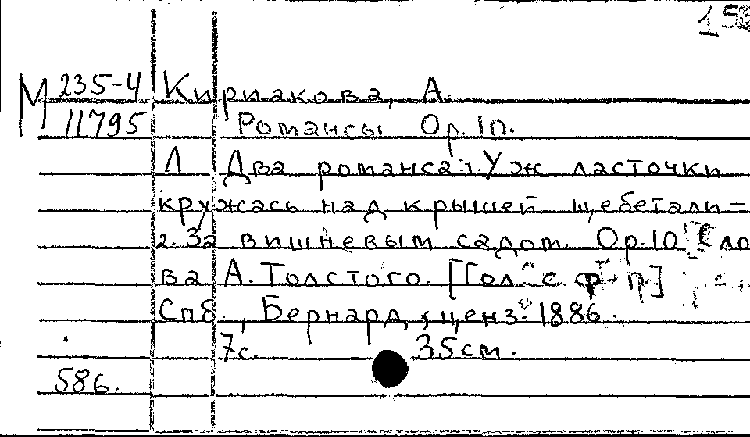 М 235-4
11795
Кириакова, А.
Романсы Ор.
Л Два романса: Уж ласточки
кружась над крышей щебетали –
2. За вишневым садом. Ор. 10 Сло
ва А. Толстого. [Гол. с ф-п]
Спб., Бернард, ценз. 1886.
7с. 35см.
586.